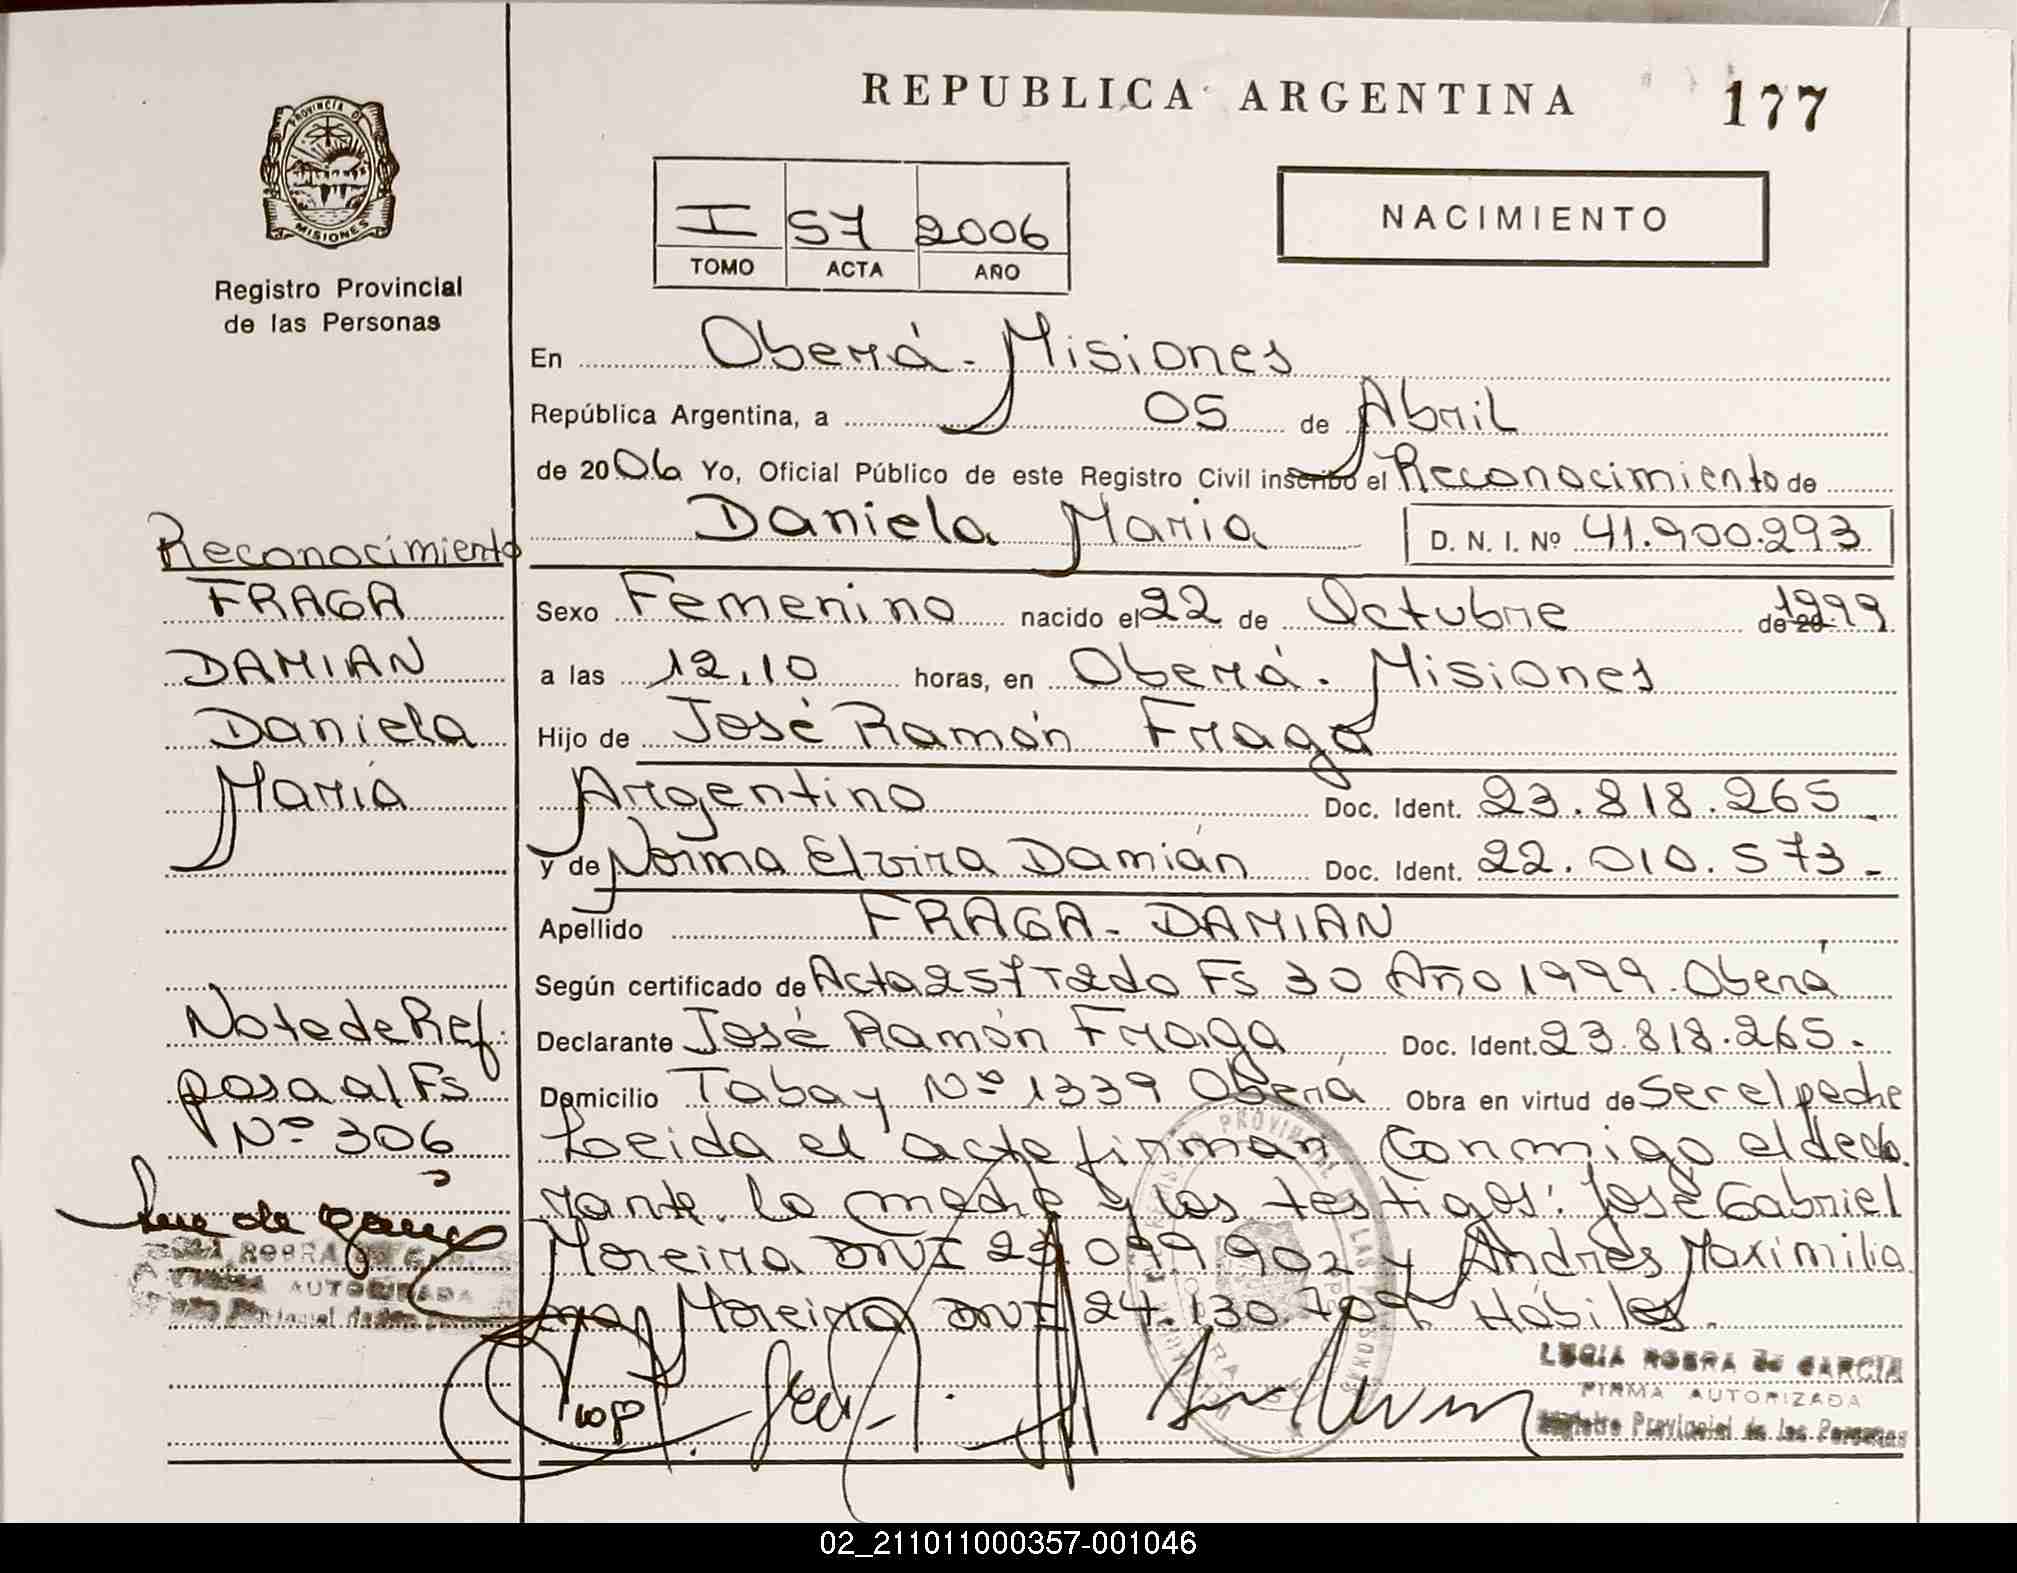 REPUBLICA ARGENTINA
177
PROVINCIA DE
MISIONES
Registro Provincial
de las Personas
I 57 2006
TOMO ACTA AÑO
NACIMIENTO
En Oberá - Misiones
República Argentina, a 05 de Abril
de 2006 Yo, Oficial Público de este Registro Civil inscribo el Reconocimiento de
Daniela Maria D. N. I. Nº 41.900.293
Reconocimiento
FRAGA
DAMIAN
Daniela
María
Sexo Femenino nacido el 22 de Octubre de 20 1999
a las 12,10 horas, en Oberá. Misiones
Hijo de José Ramón Fraga
Argentino Doc. Ident. 23.818.265
y de Norma Elvira Damián Doc. Ident. 22.010.573 -
Apellido FRAGA - DAMIAN
Según certificado de Acta 257 T2do Fs 30 Año 1999. Oberá
Declarante José Ramón Fraga Doc. Ident. 23.818.265.
Domicilio Tabay Nº 1339 Oberá Obra en virtud de ser el padre
Leida el acta firman Conmigo el decla
rante. la madre y los testigos: José Gabriel
Moreira DNI 099 902 y Andrés Maximilia
no Moreira DNI 24.130.709. Hábiles.
Nota de Ref.
pasa al Fs
Nº 306
ROBRA
AUTORIZADA
LUCIA ROBRA de GARCIA
FIRMA AUTORIZADA
Registro Provincial de las Personas
02_211011000357-001046